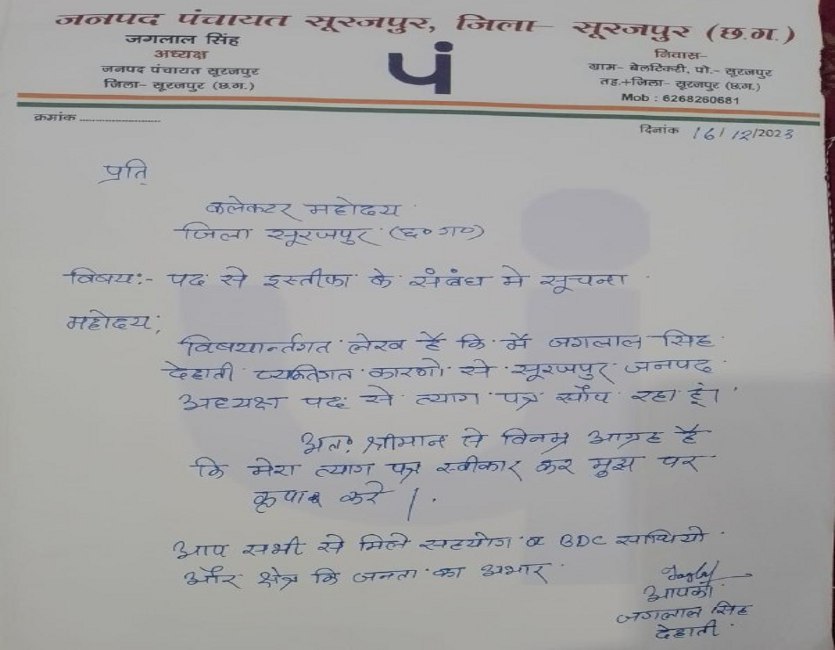 जनपद पंचायत सूरजपुर, जिला- सूरजपुर (छ.ग.)
जगलाल सिंह
अध्यक्ष
जनपद पंचायत सूरजपुर
जिला- सूरजपुर (छ.ग.)
पं
निवास-
ग्राम- बेलटिकरी, पो.- सूरजपुर
तह.+जिला- सूरजपुर (छ.ग.)
Mob : 6268260681
क्रमांक ........................
दिनांक 16/12/2023
प्रति
कलेक्टर महोदय
जिला सूरजपुर (छ० ग०)
विषय:- पद से इस्तीफा के संबंध मे सूचना
महोदय,
विषयार्न्तगत लेख है कि मैं जगलाल सिंह
देहाती व्यक्तिगत कारणो से सूरजपुर जनपद
अध्यक्ष पद से त्याग पत्र सौंप रहा हूं।
अतः श्रीमान से विनम्र आग्रह है
कि मेरा त्याग पत्र स्वीकार कर मुझ पर
कृपा करे ।
आप सभी से मिले सहयोग व BDC साथियो
और क्षेत्र कि जनता का अभार
आपका
जगलाल सिंह
देहाती